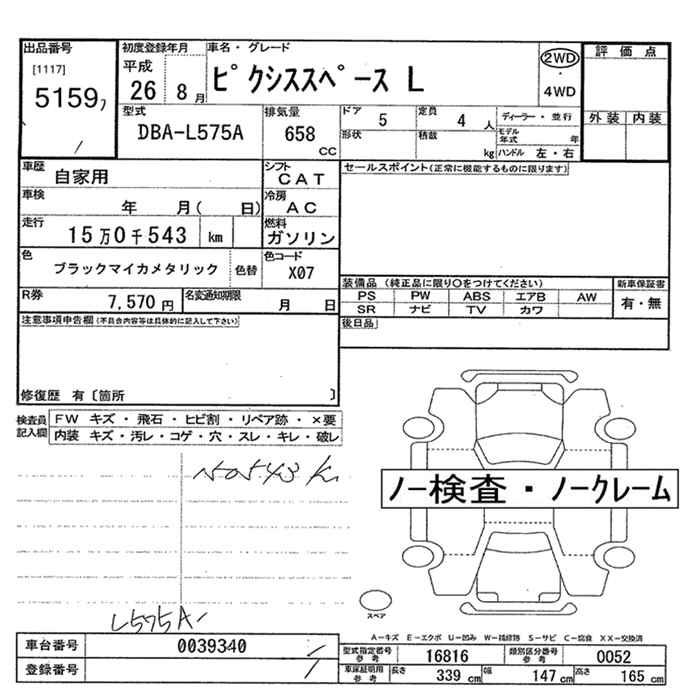 出品番号
[1117]
5159フ
初度登録年月
平成
26 8月
車名・グレード
ピクシススペース L
2WD
・
4WD
評価点
外装 内装
型式
DBA-L575A
排気量
658
CC
ドア 5
形状
定員 4 人
積載 kg
ディーラー・並行
モデル年式 年
ハンドル 左・右
車歴
自家用
シフト
CAT
車検
年 月( 日)
冷房
AC
走行
15万0千543 km
燃料
ガソリン
色
ブラックマイカメタリック
色替
色コード
X07
R券
7,570円
名変通知期限
月 日
セールスポイント(正常に機能するものに限ります)
装備品 (純正品に限り○をつけてください)
PS PW ABS エアB AW
SR ナビ TV カワ
新車保証書
有・無
後日品
注意事項申告欄(不具合内容等は具体的に記入して下さい)
修復歴 有〔箇所 〕
検査員記入欄
FW キズ・飛石・ヒビ割・リペア跡・×要
内装 キズ・汚レ・コゲ・穴・スレ・キレ・破レ
150543 K
ノー検査・ノークレーム
スペア
L575A-
A-キズ E-エクボ U-凹み W-補修跡 S-サビ C-腐食 XX-交換済
車台番号 0039340
登録番号
型式指定番号参考 16816
類別区分番号参考 0052
車庫証明用参考 長さ 339 cm 幅 147 cm 高さ 165 cm